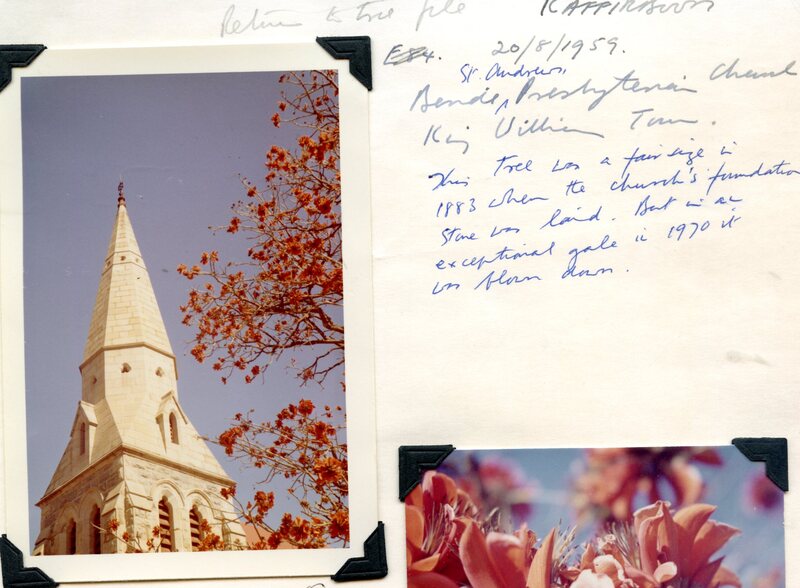 Return to tree file KAFFIRBOOM
E84. 20/8/1959.
St. Andrews
Beside ^ Presbyterian Church
King William Town.
This tree was a fair size in
1883 when the church's foundation
stone was laid. But in an
exceptional gale in 1970 it
was blown down.